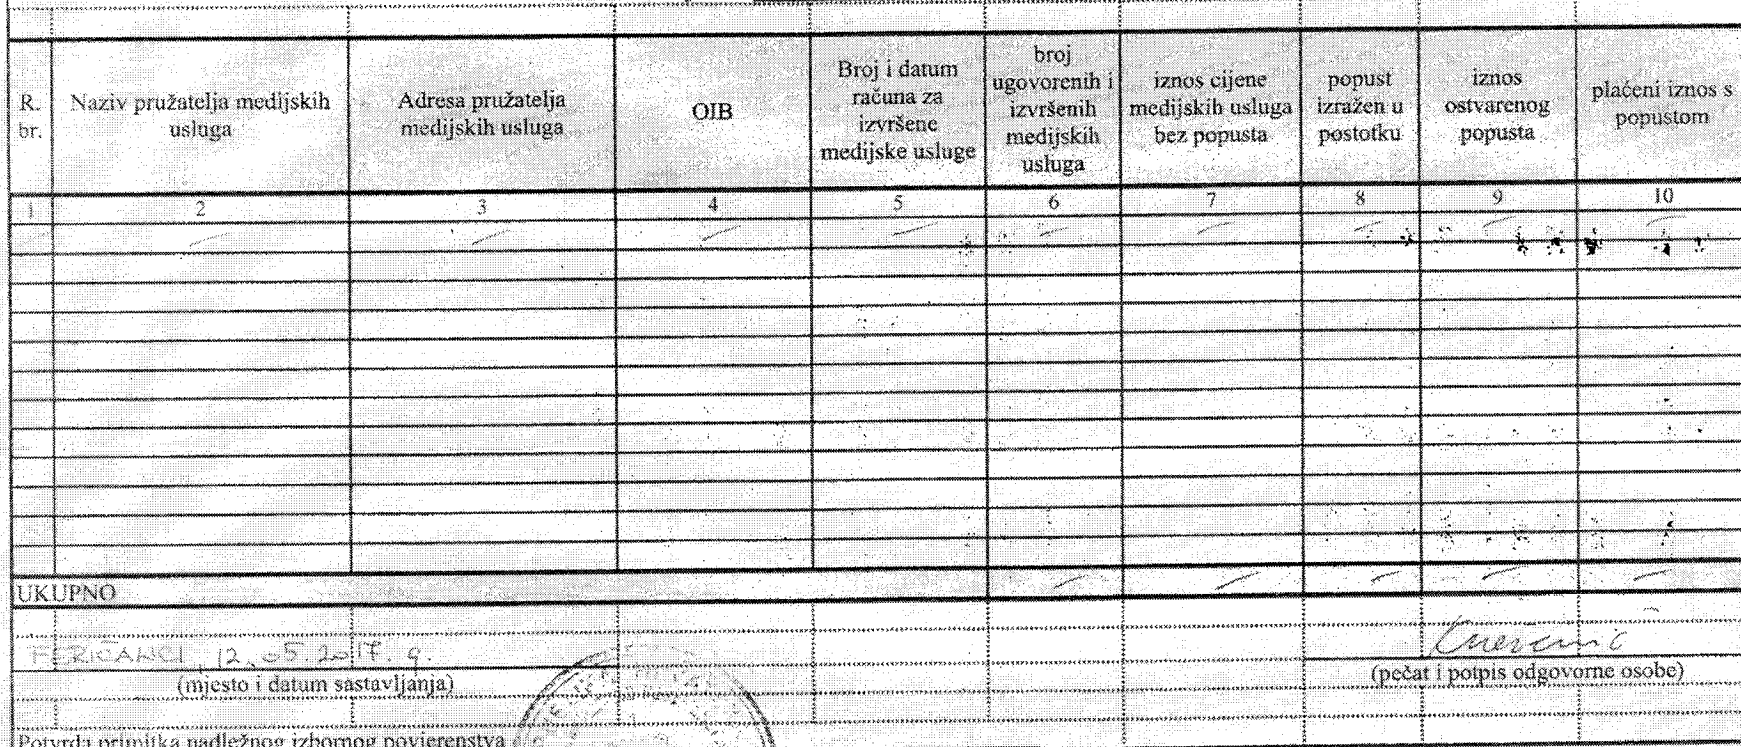 R. br.
Naziv pružatelja medijskih usluga
Adresa pružatelja medijskih usluga
OIB
Broj i datum računa za izvršene medijske usluge
broj ugovorenih i izvršenih medijskih usluga
iznos cijene medijskih usluga bez popusta
popust izražen u postotku
iznos ostvarenog popusta
plaćeni iznos s popustom
1 2 3 4 5 6 7 8 9 10
UKUPNO
FERIČANCI, 12.05.2017. g.
(mjesto i datum sastavljanja)
(pečat i potpis odgovorne osobe)
Potvrda primitka nadležnog izbornog povjerenstva